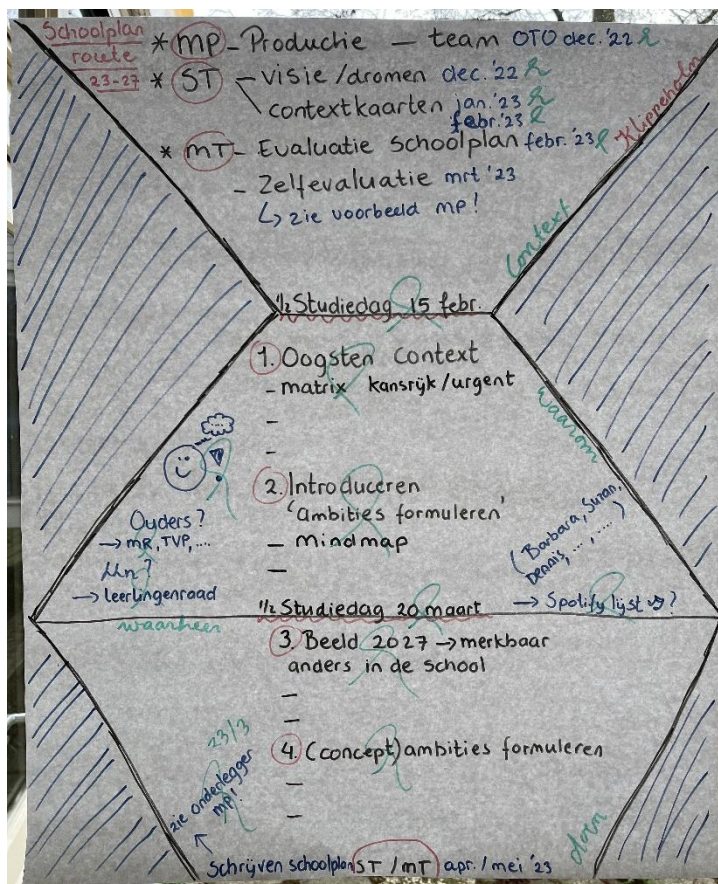 Schoolplan
route
23-27
* MP - Productie - team OTO dec. '22
* ST - visie / dromen dec. '22
contextkaarten jan. '23
febr. '23
* MT - Evaluatie schoolplan febr. '23
- Zelfevaluatie mrt '23
↳ zie voorbeeld MP!
Klipperholm
Context
1/2 Studiedag 15 febr.
1. Oogsten context
- matrix kansrijk / urgent
-
-
waarom
2. Introduceren
'ambities formuleren'
- mindmap
-
Ouders?
→ MR, TVP, ....
lln?
→ leerlingenraad
(Barbara, Suzan,
Dennis, ..., ....)
→ Spotify lijst ?
1/2 Studiedag 20 maart
waarheen
3. Beeld 2027 → merkbaar
anders in de school
-
-
23/3
4. (concept) ambities formuleren
-
-
zie onderlegger
MP!
doen
Schrijven schoolplan ST / MT apr. / mei '23